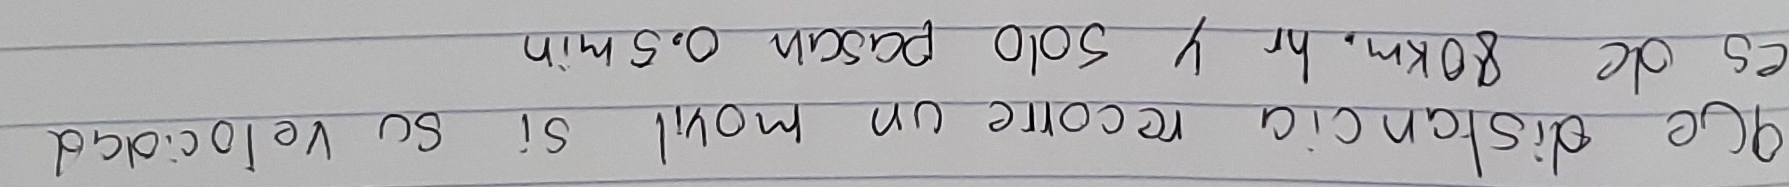 que distancia recorre un movil si su velocidad
es de 80km.hr y solo pasan 0.5min